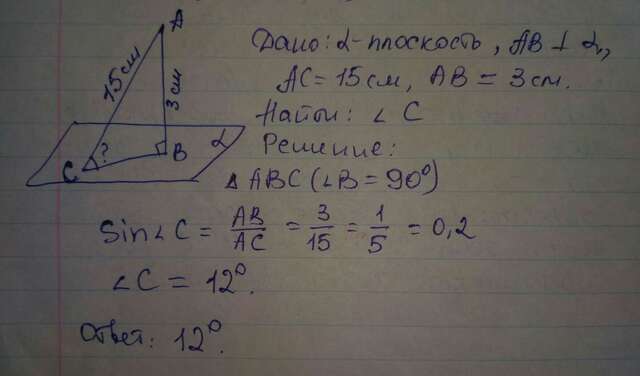 A
15 см
3 см
C
?
B
α
Дано: α-плоскость, AB ⊥ α,
AC = 15 см, AB = 3 см.
Найти: ∠ C
Решение:
Δ ABC (∠B = 90°)
Sin∠ C = AB/AC = 3/15 = 1/5 = 0,2
∠C = 12°.
Ответ: 12°.